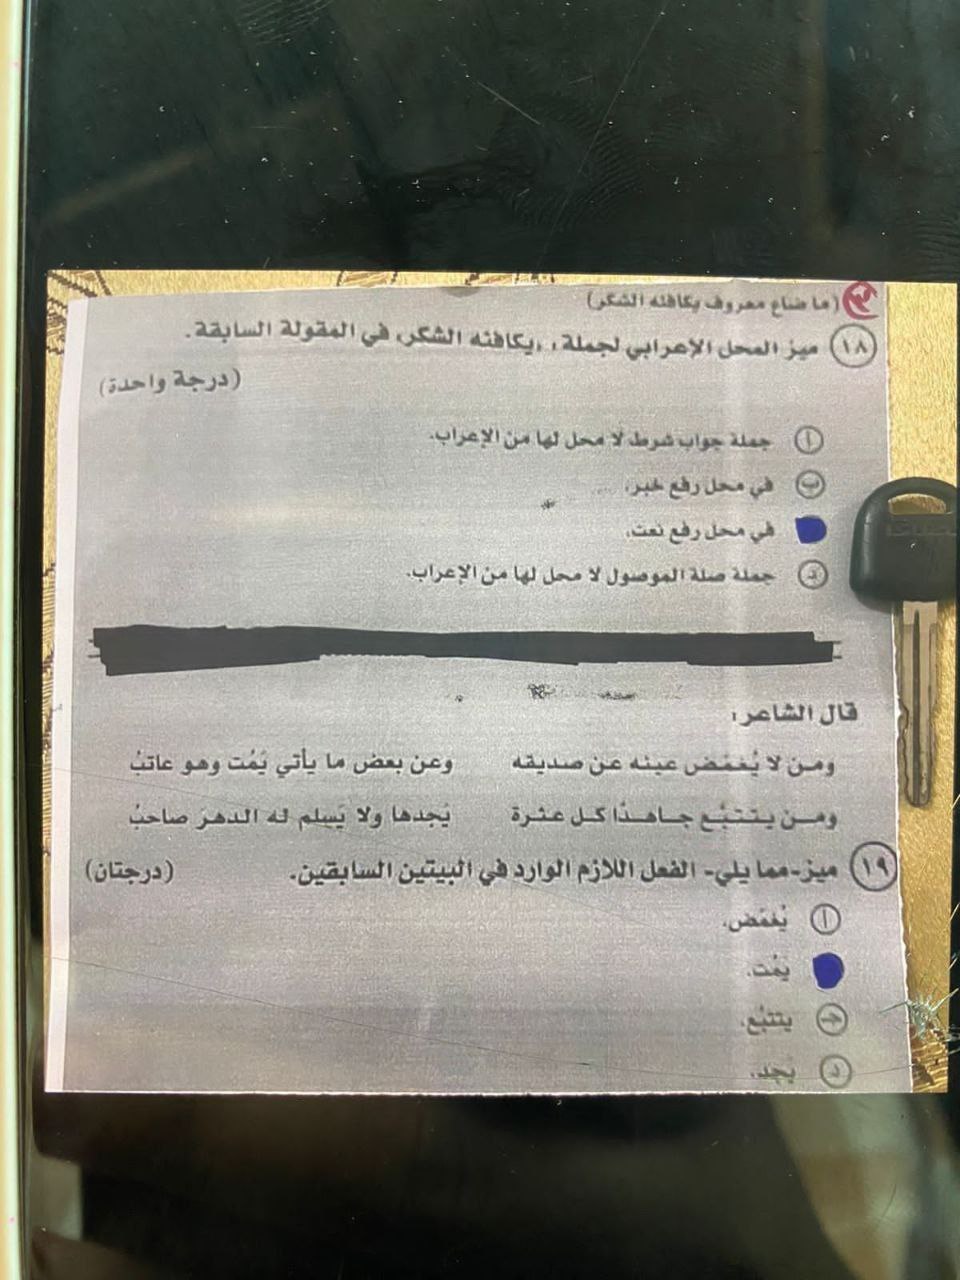 (ما ضاع معروف يكافئه الشكر)
١٨ ميز المحل الإعرابي لجملة، "يكافئه الشكر" في المقولة السابقة.
(درجة واحدة)
أ جملة جواب شرط لا محل لها من الإعراب.
ب في محل رفع خبر.
في محل رفع نعت.
د جملة صلة الموصول لا محل لها من الإعراب.
قال الشاعر:
ومن لا يُغمّض عينه عن صديقه وعن بعض ما يأتي يَمُت وهو عاتبُ
ومن يتتبّع جاهدًا كل عثرة يَجدها ولا يَسلم له الدهرَ صاحبُ
١٩ ميز-مما يلي- الفعل اللازم الوارد في البيتين السابقين. (درجتان)
أ يُغمّض.
يمُت.
ج يتتبّع.
د يجد.